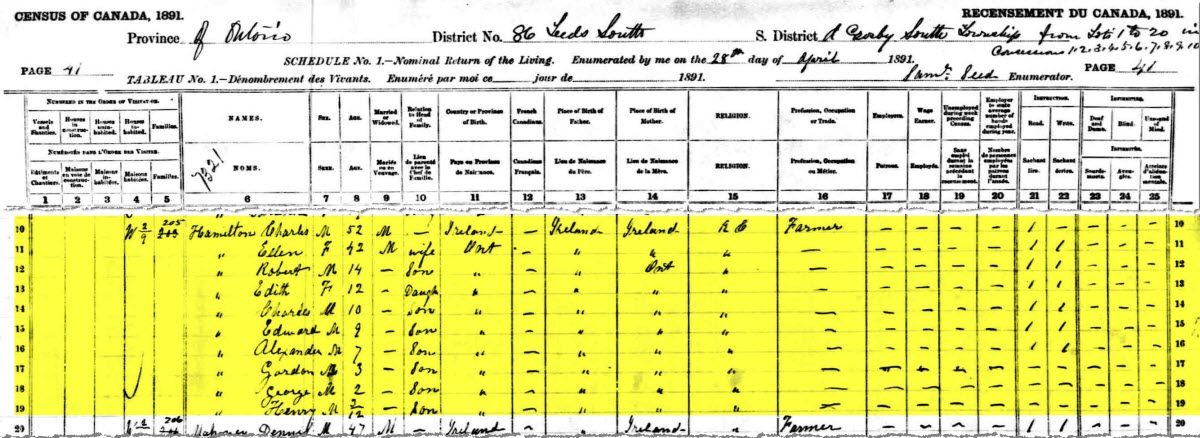 CENSUS OF CANADA, 1891. RECENSEMENT DU CANADA, 1891.
Province of Ontario District No. 86 Leeds South S. District Crosby South Township from Lots 1 to 20 in
Concessions 1.2.3.4.5.6.7.8.9.10
SCHEDULE No. 1.—Nominal Return of the Living. Enumerated by me on the 28th day of April 1891.
PAGE 41 Enumerator. PAGE 41
TABLEAU No. 1.—Dénombrement des Vivants. Enuméré par moi ce jour de 1891.
NUMBERED IN THE ORDER OF VISITATION. NAMES. SEX. AGE. Married or Widowed. Relation to Head of Family. Country or Province of Birth. French Canadians. Place of Birth of Father. Place of Birth of Mother. RELIGION. Profession, Occupation or Trade. Employers. Wage Earner. Unemployed during week preceding Census. Employer to state average number of hands employed during year. INSTRUCTION. INFIRMITIES.
Vessels and Shanties. Houses in construction. Houses uninhabited. Houses inhabited. Families. Read. Write. Deaf and Dumb. Blind. Unsound of Mind.
NUMÉROTÉS DANS L'ORDRE DES VISITES. NOMS. SEXE. AGE. Mariés ou en Veuvage. Lien de parenté avec le Chef de Famille. Pays ou Province de Naissance. Canadiens Français. Lieu de Naissance du Père. Lieu de Naissance de la Mère. RELIGION. Profession, Occupation ou Métier. Patrons. Employés. Sans emploi durant la semaine précédant le recensement. Nombre de personnes employées par les patrons durant l'année. INSTRUCTION. INFIRMITÉS.
Bâtiments et Chantiers. Maisons en voie de construction. Maisons inhabitées. Maisons habitées. Familles. Sachant lire. Sachant écrire. Sourds-muets. Aveugles. Atteints d'aliénation mentale.
1 2 3 4 5 6 7 8 9 10 11 12 13 14 15 16 17 18 19 20 21 22 23 24 25
10 W 2/9 205 Hamilton Charles M 52 M — Ireland — Ireland Ireland R C Farmer — — — — 1 1 — — — 10
11 " Ellen F 42 M wife Ont — " " " — — — — — 1 1 — — — 11
12 " Robert M 14 — Son " — " Ont " — — — — — 1 1 — — — 12
13 " Edith F 12 — Daugh " — " " " — — — — — 1 1 — — — 13
14 " Charles M 10 — Son " — " " " — — — — — 1 1 — — — 14
15 " Edward M 9 — Son " — " " " — — — — — 1 1 — — — 15
16 " Alexander M 7 — Son " — " " " — — — — — 1 1 — — — 16
17 " Gordon M 3 — Son " — " " " — — — — — — — — — — 17
18 " George M 2 — Son " — " " " — — — — — — — — — — 18
19 " Henry M 2/12 — Son " — " " " — — — — — — — — — — 19
20 206 Dennis M 47 M — Ireland — " Ireland " Farmer — — — — 1 1 — — — 20